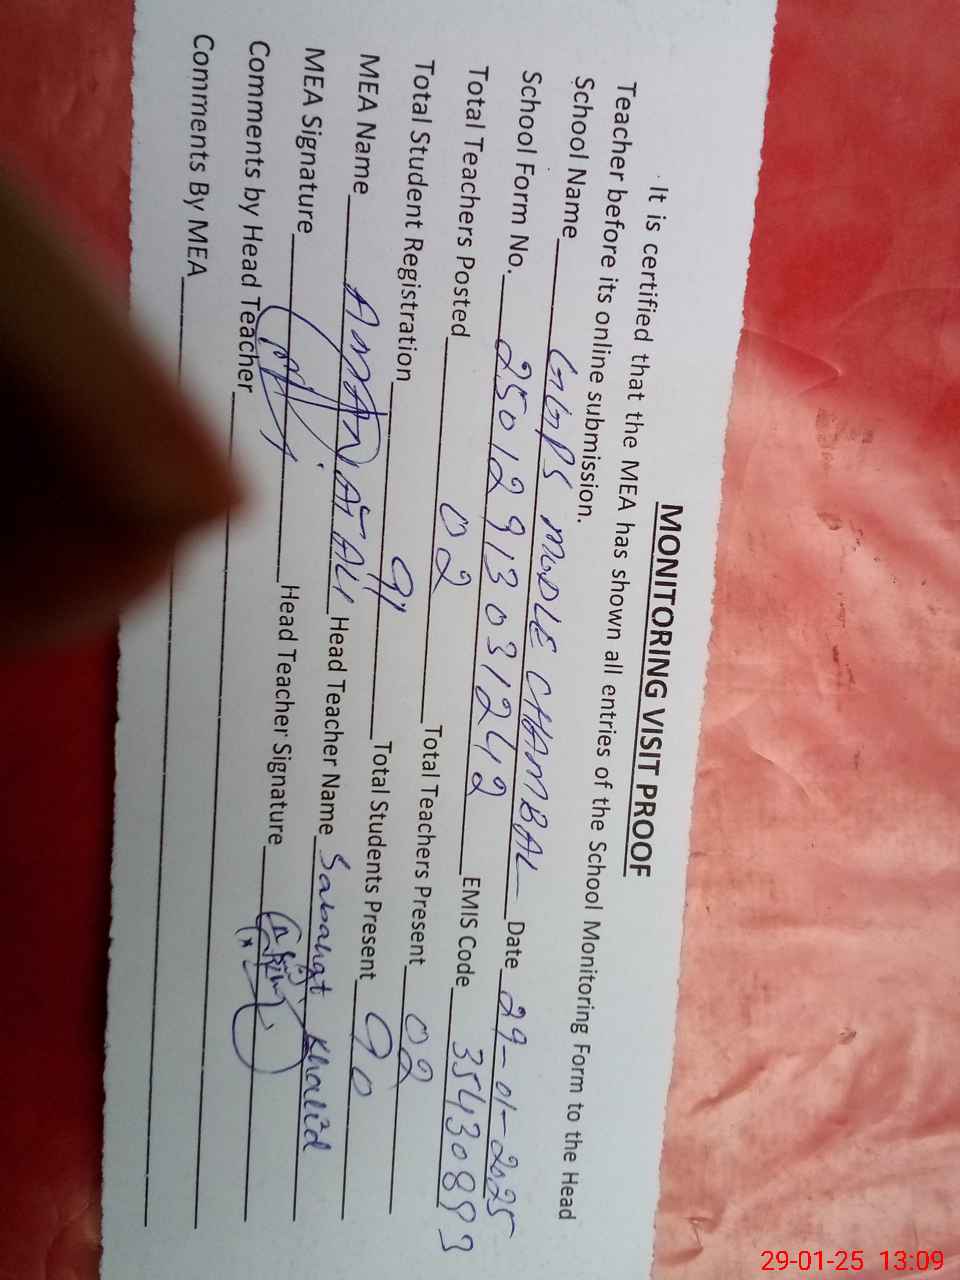 MONITORING VISIT PROOF
It is certified that the MEA has shown all entries of the School Monitoring Form to the Head
Teacher before its online submission.
School Name GGPS MODLE CHAMBAL Date 29-01-2025
School Form No. 25012913031242 EMIS Code 35430893
Total Teachers Posted 02 Total Teachers Present 02
Total Student Registration 91 Total Students Present 90
MEA Name AMANAT ALI Head Teacher Name Sabahat Khalid
MEA Signature Head Teacher Signature
Comments by Head Teacher
Comments By MEA
29-01-25 13:09